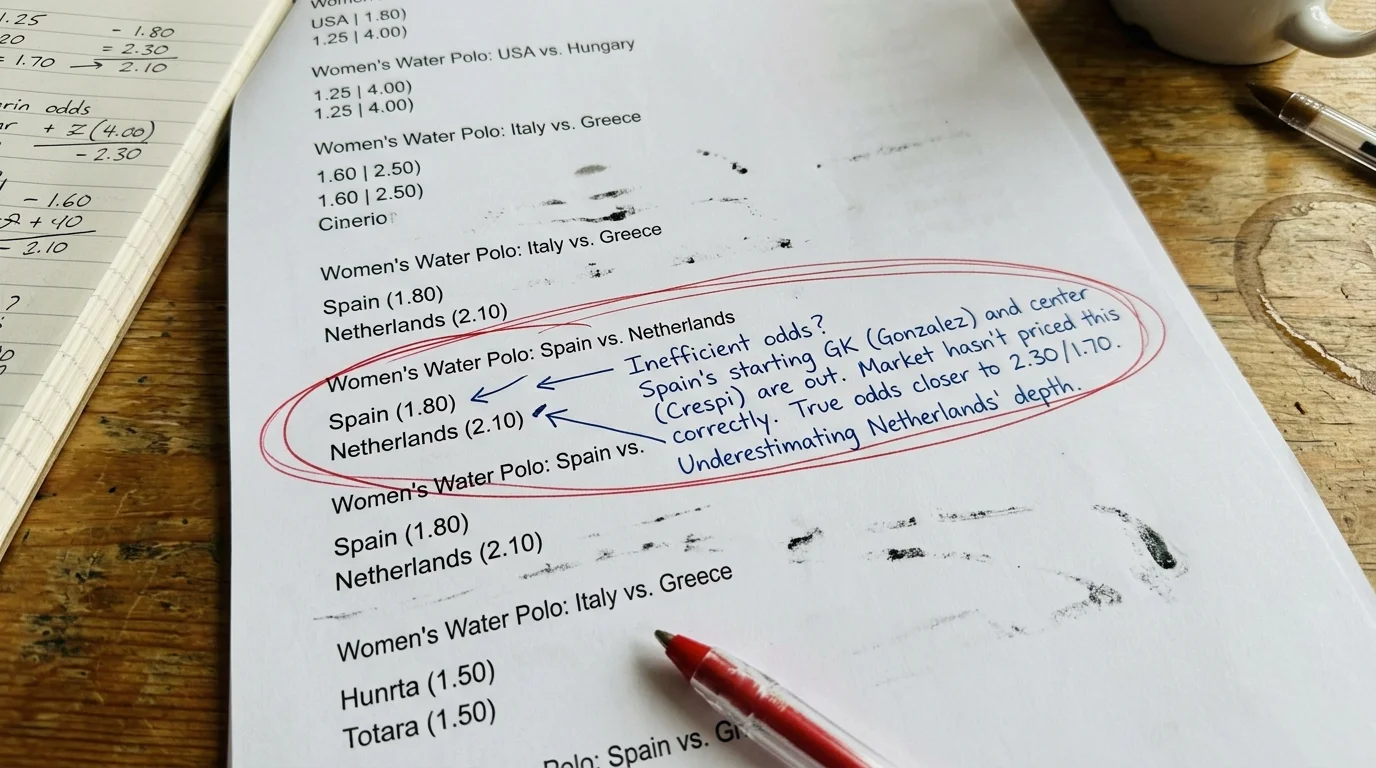 1.25
20
= 1.70 → 2.10
- 1.80
= 2.30
rin odds
+ Z (4.00)
- 2.30
- 1.60
+ 40
- 2.10
?
USA | 1.80)
1.25 | 4.00)
Women's Water Polo: USA vs. Hungary
1.25 | 4.00)
1.25 | 4.00)
Women's Water Polo: Italy vs. Greece
1.60 | 2.50)
1.60 | 2.50)
Cinerio
Women's Water Polo: Italy vs. Greece
Spain (1.80)
Netherlands (2.10)
Women's Water Polo: Spain vs. Netherlands
Spain (1.80)
Netherlands (2.10)
Inefficient odds?
Spain's starting GK (Gonzalez) and center
(Crespi) are out. Market hasn't priced this
correctly. True odds closer to 2.30/1.70.
Underestimating Netherlands' depth.
Women's Water Polo: Spain vs.
Spain (1.80)
Netherlands (2.10)
Women's Water Polo: Italy vs. Greece
Hunrta (1.50)
Totara (1.50)
Polo: Spain vs. Gr